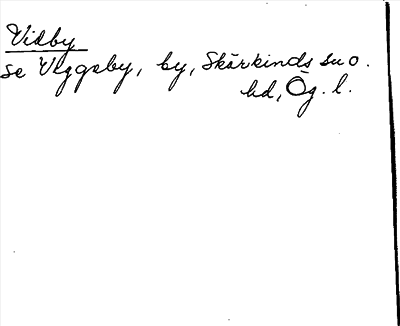 Vidby
se Viggeby, by, Skärkinds sn o.
hd, Ög. l.